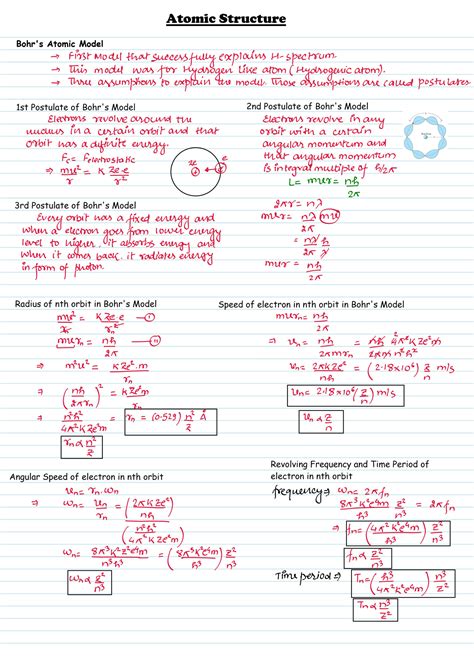 Atomic Structure
Bohr's Atomic Model
→ First Model that successfully explains H-spectrum.
→ This model was for Hydrogen like atom (Hydrogenic atom).
→ Three assumptions to explain the model. Those assumptions are called postulates
1st Postulate of Bohr's Model
Electrons revolve around the
nucleus in a certain orbit and that
orbit has a definite energy.
Fc = Felectrostatic
⇒ mv²/r = KZe.e/r²
Ze e
2nd Postulate of Bohr's Model
Electrons revolve in any
orbit with a certain
angular momentum and
that angular momentum
is integral multiple of h/2π
L = mvr = nh/2π
2πr = nλ
mvr = nλ/2π (mv)
= nλ/2π h/λ
mvr = nh/2π
3rd Postulate of Bohr's Model
Every orbit has a fixed energy and
when a electron goes from lower energy
level to higher, it absorbs energy and
when it comes back, it radiates energy
in form of photon.
Radius of nth orbit in Bohr's Model
mv²/rn = KZe.e/rn² — (i)
mvrn = nh/2π — (ii)
⇒ m²v² = KZe².m/rn
⇒ (nh/2πrn)² = KZe²m/rn
⇒ n²h²/4π²KZe²m = rn = (0.529) n²/Z Å
rn ∝ n²/Z
Speed of electron in nth orbit in Bohr's Model
mvrn = nh/2π
⇒ vn = nh/2πmrn = nh 4π²KZe²m/2πm n²h²
vn = 2πKZe²/nh = (2.18×10⁶) Z/n m/s
vn = 2.18×10⁶ (Z/n) m/s
vn ∝ Z/n
Angular Speed of electron in nth orbit
vn = rn.wn
⇒ wn = vn/rn = (2πKZe²/nh)/(n²h²/4π²KZe²m)
wn = 8π³K²Z²e⁴m/n³h³ = (8π³K²e⁴m/h³) Z²/n³
wn ∝ Z²/n³
Revolving Frequency and Time Period of
electron in nth orbit
frequency ⇒ wn = 2πfn
8π³K²e⁴m/h³ Z²/n³ = 2πfn
⇒ fn = (4π²K²e⁴m/h³) Z²/n³
fn ∝ Z²/n³
Time period ⇒ Tn = (h³/4π²K²e⁴m) n³/Z²
Tn ∝ n³/Z²